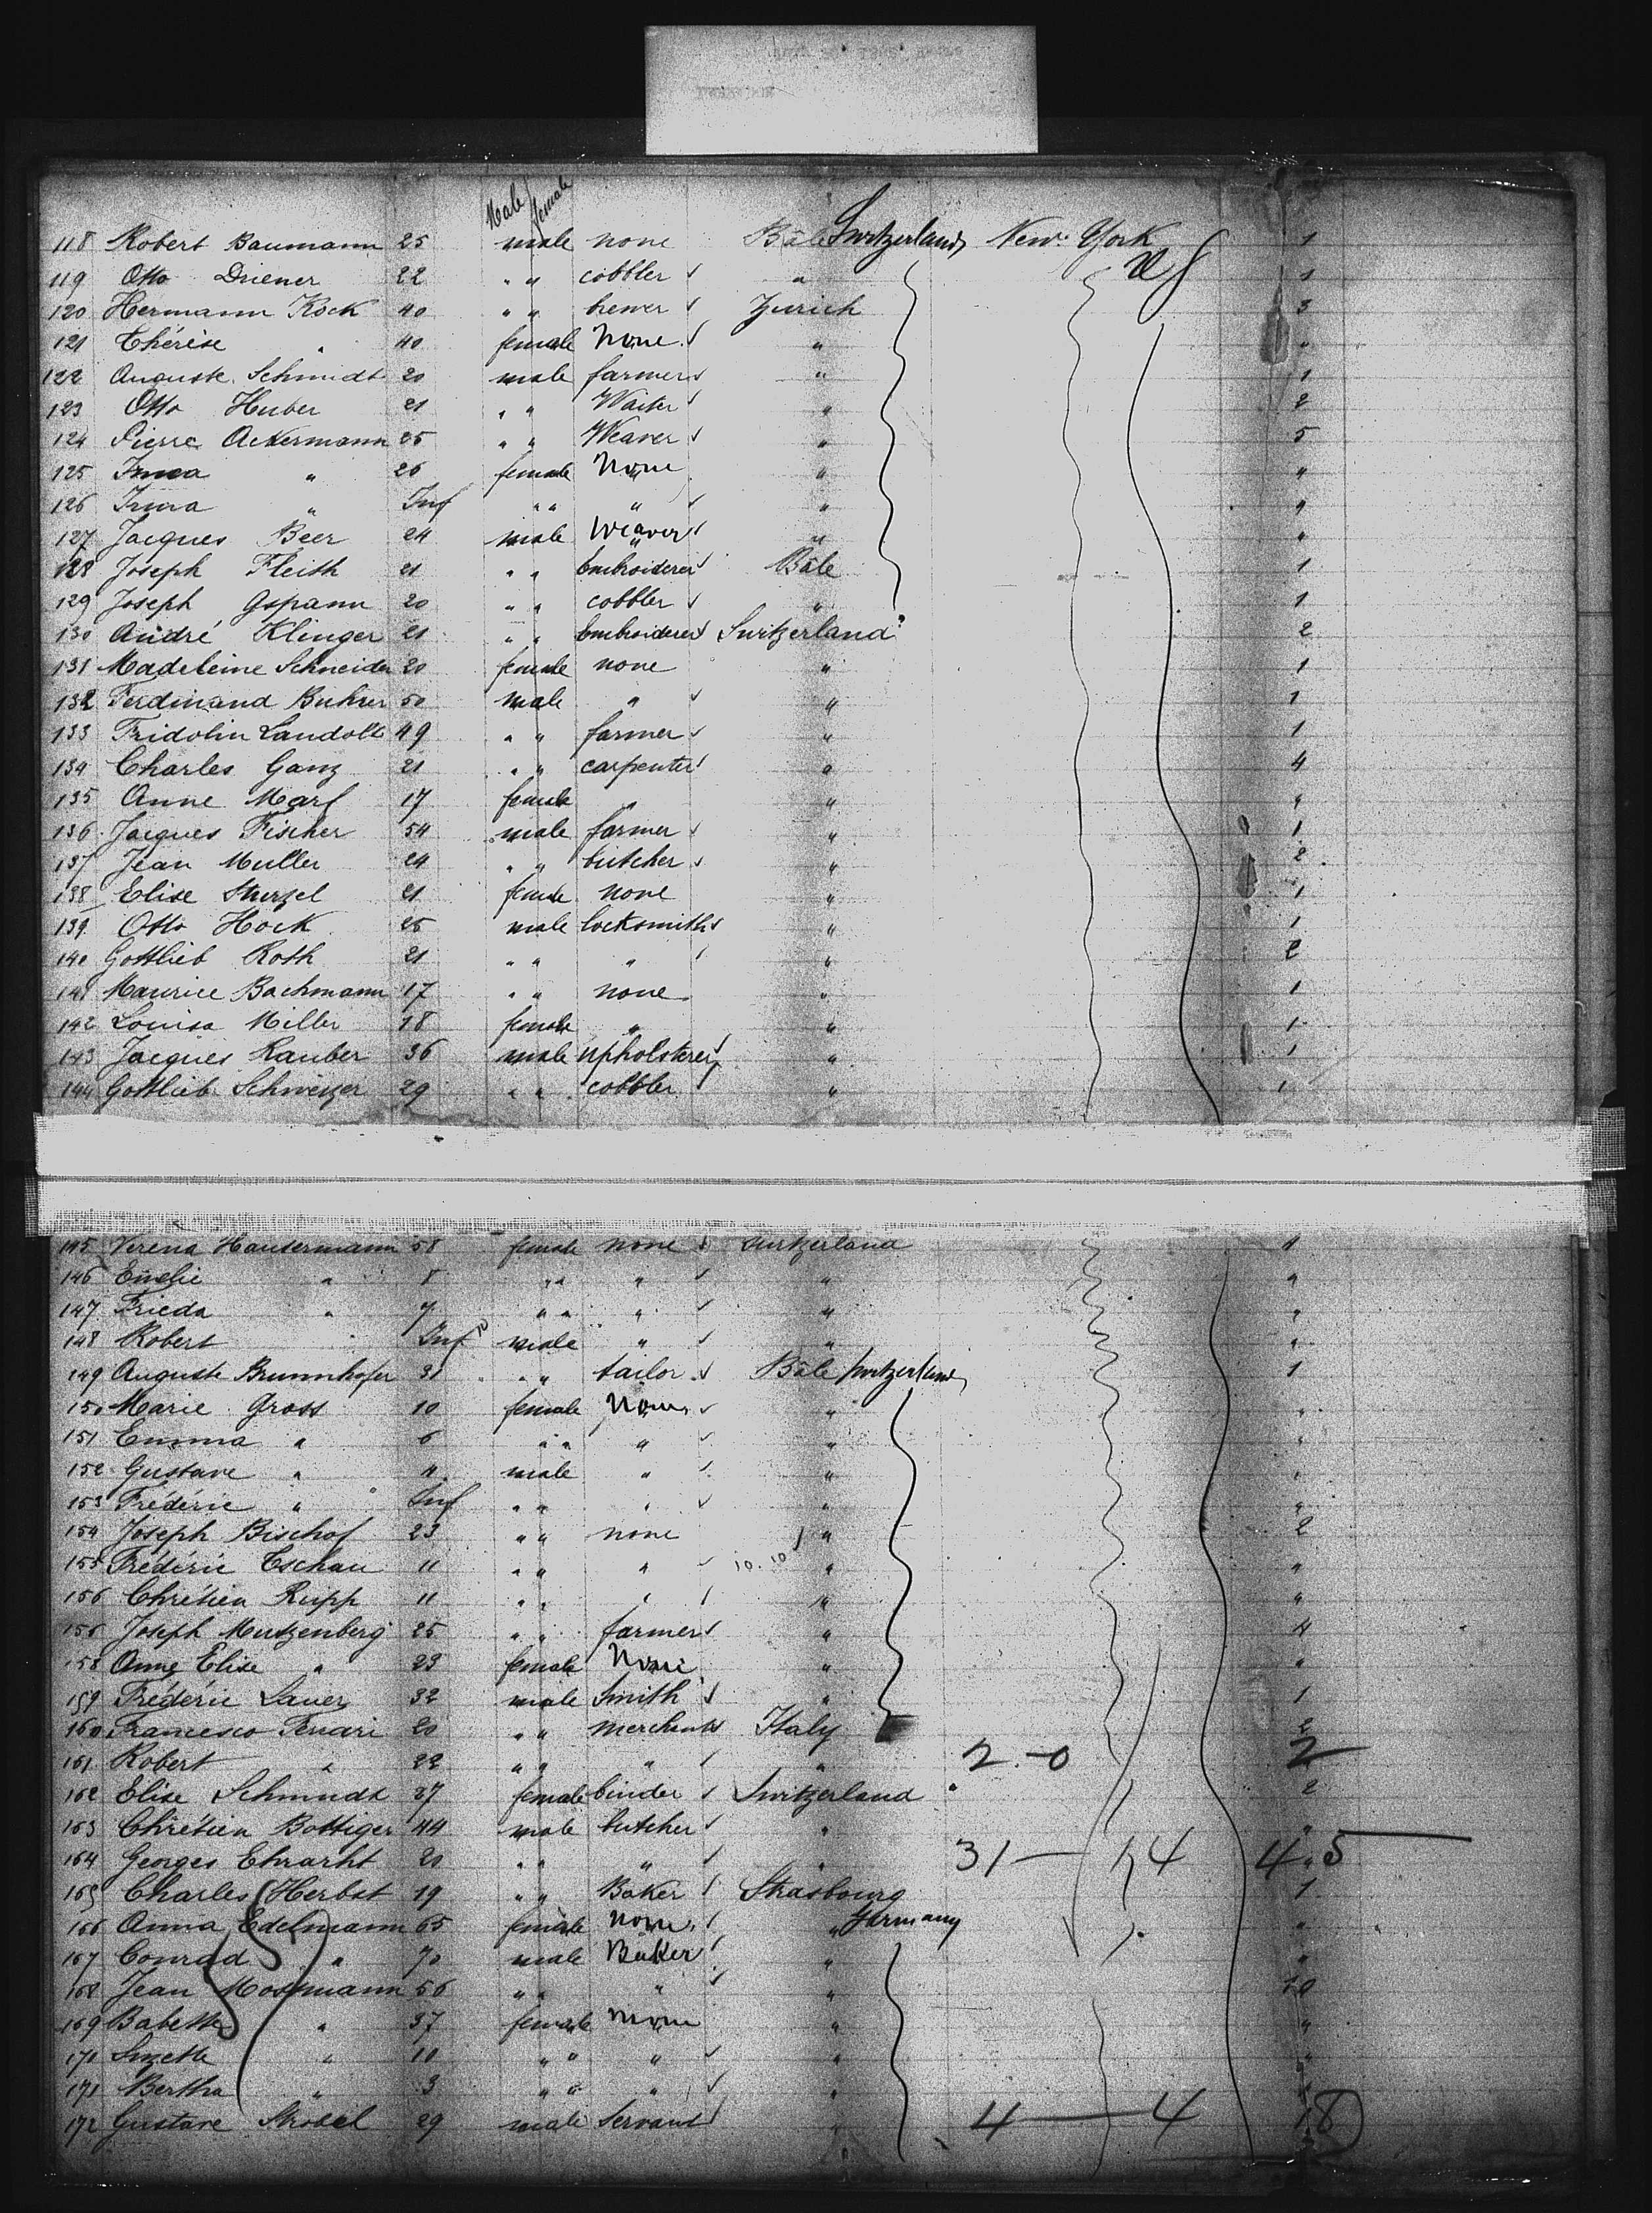 Male female
118 Robert Baumann 25 male none Bâle Switzerland, New York 1
119 Otto Driener 22 " " cobbler " 1
120 Hermann Kock 40 " " brewer Zurich 3
121 Thérèse " 40 female None " "
122 Auguste Schmidt 20 male farmer " 1
123 Otto Huber 21 " " Waiter " 2
124 Pierre Ackermann 25 " " Weaver " 5
125 " 26 female None " "
126 Irma " Inf " " " " "
127 Jacques Beer 24 male Weaver " "
128 Joseph Fleith 21 " " Embroiderer Bâle 1
129 Joseph Gspann 20 " " cobbler " 1
130 André Klinger 21 " " Embroiderer Switzerland 2
131 Madeleine Schneider 20 female none " 1
132 Ferdinand Buhrer 50 male " " 1
133 Fridolin Landolt 49 " " farmer " 1
134 Charles Ganz 21 " " carpenter " 4
135 Anne Marf 17 female " " "
136 Jacques Fischer 54 male farmer " 1
137 Jean Muller 24 " " butcher " 2
138 Elise 21 female none " 1
139 Otto Hock 25 male locksmith " 1
140 Gottlieb Roth 21 " " " " 2
141 Maurice Bachmann 17 " " none " 1
142 Louisa Miller 18 female " " 1
143 Jacques Rauber 36 male upholsterer " 1
144 Gottlieb Schweizer 29 " " cobbler " 1
145 Verena Hausermann 58 female none Switzerland 4
146 Emelie " 8 " " " " "
147 Frieda " 7 " " " " "
148 Robert Inf male " " "
149 Auguste Brunnhofer 31 " " tailor Bâle Switzerland, 1
150 Marie Gross 10 female None " "
151 Emma " 6 " " " " "
152 Gustave " 4 male " " "
153 Frédéric " Inf " " " " "
154 Joseph Bischof 23 " " none " 2
155 Frédéric Tschau 11 " " " 10.10 " "
156 Chrétien Rupp 11 " " " " "
156 Joseph Mutzenberg 25 " " farmer " 4
158 Anne Elise " 23 female None " "
159 Frédéric Lauer 32 male Smith " 1
160 Francesco Ferrari 20 " " merchants Italy 2
161 Robert " 22 " " " " 2-0 2
162 Elise Schmidt 37 female binder Switzerland " 2
163 Chrétien Bottiger 44 male butcher " "
164 Georges Ehrarht 20 " " " " 31 — 14 45
165 Charles Herbst 19 " " Baker Strasbourg 1
166 Anna Edelmann 65 female None " Germany "
167 Conrad " 70 male Baker " "
168 Jean Mosmann 56 " " " " 10
169 Babette " 37 female None " "
170 " 10 " " " " "
171 Bertha " 3 " " " " "
172 Gustave Strobel 29 male Servant " 4 — 4 18